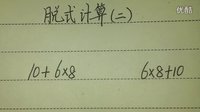 脱式计算(二)
10+6×8 6×8+10